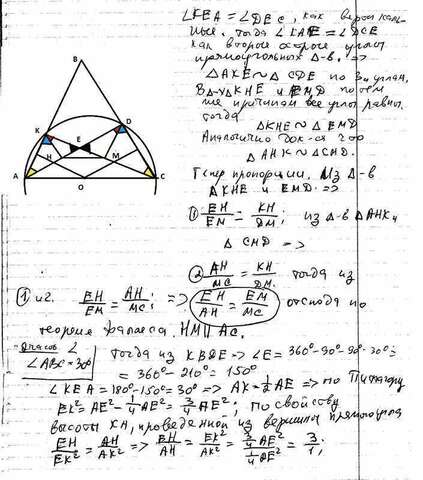 B
K
D
E
H
M
A
O
C
∠KEA = ∠DEC, как вертикаль-
ные, тогда ∠KAE = ∠DCE
как вторые острые углы
прямоугольных Δ-в. =>
ΔAKE ~ Δ CDE по 3м углам.
В Δ-х ΔKHE и EMD по тем
же причинам все углы равны.
тогда
ΔKHE ~ Δ EMD
Аналогично док-ся что
ΔAHK ~ ΔCMD.
Теперь пропорции. Из Δ-в
ΔKHE и EMD. =>
① EH/EM = KH/DM; из Δ-в ΔAHK и
Δ CMD =>
② AH/MC = KH/DM. тогда из
① и 2. EH/EM = AH/MC; => EH/AH = EM/MC отсюда по
теореме Фалеса. HM || AC.
∠ABC = 30°
тогда из KBDE => ∠E = 360°-90°-90°-30° =
= 360° - 210° = 150°
∠KEA = 180°-150° = 30° => AK = ½ AE => по Пифагору
EK² = AE² - ¼AE² = ¾AE²; по свойству
высоты KH, проведенной из вершины прямого угла
EH/EK² = AH/AK² => EH/AH = EK²/AK² = ¾AE²/¼AE² = 3/1;